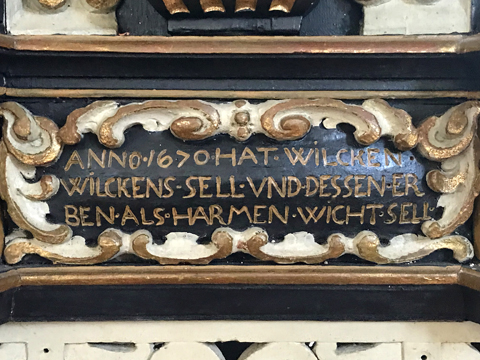 ANNO·1670·HAT·WILCKEN·
WILCKENS·SELL·VND·DESSEN·ER
BEN·ALS·HARMEN·WICHT·SELL